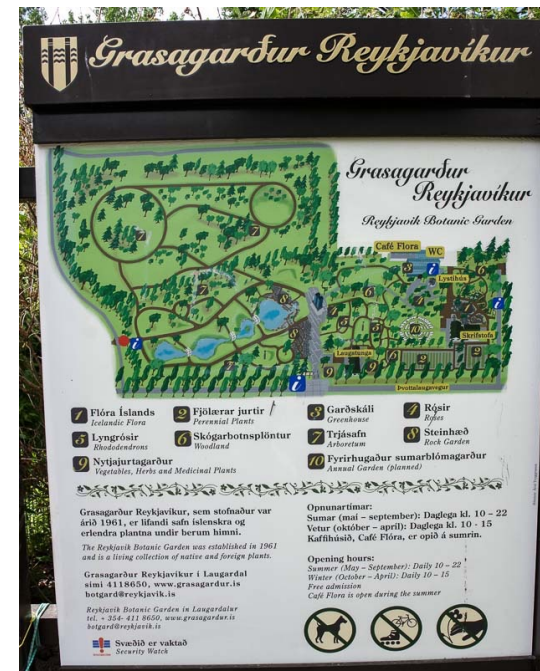 Grasagarður Reykjavíkur
Grasagarður
Reykjavíkur
Reykjavik Botanic Garden
Café Flora
WC
Lystihús
Skrifstofa
Laugatunga
Þvottalaugavegur
1 Flóra Íslands
Icelandic Flora
2 Fjölærar jurtir
Perennial Plants
3 Garðskáli
Greenhouse
4 Rósir
Roses
5 Lyngrósir
Rhododendrons
6 Skógarbotnsplöntur
Woodland
7 Trjásafn
Arboretum
8 Steinhæð
Rock Garden
9 Nytjajurtagarður
Vegetables, Herbs and Medicinal Plants
10 Fyrirhugaður sumarblómagarður
Annual Garden (planned)
Grasagarður Reykjavíkur, sem stofnaður var
árið 1961, er lifandi safn íslenskra og
erlendra plantna undir berum himni.
The Reykjavik Botanic Garden was established in 1961
and is a living collection of native and foreign plants.
Grasagarður Reykjavíkur í Laugardal
sími 4118650, www.grasagardur.is
botgard@reykjavik.is
Reykjavik Botanic Garden in Laugardalur
tel. + 354- 411 8650, www.grasagardur.is
botgard@reykjavik.is
Svæðið er vaktað
Security Watch
Opnunartímar:
Sumar (maí – september): Daglega kl. 10 – 22
Vetur (október – apríl): Daglega kl. 10 - 15
Kaffihúsið, Café Flóra, er opið á sumrin.
Opening hours:
Summer (May – September): Daily 10 – 22
Winter (October – April): Daily 10 – 15
Free admission
Café Flora is open during the summer